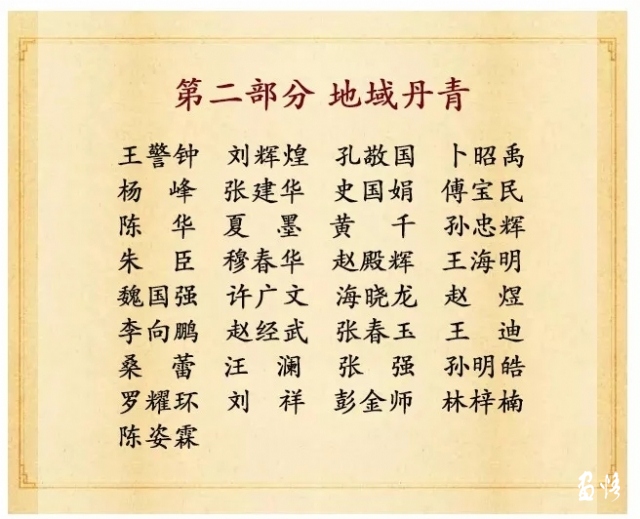 第二部分 地域丹青
王警钟 刘辉煌 孔敬国 卜昭禹
杨峰 张建华 史国娟 傅宝民
陈华 夏墨 黄千 孙忠辉
朱臣 穆春华 赵殿辉 王海明
魏国强 许广文 海晓龙 赵煜
李向鹏 赵经武 张春玉 王迪
桑蕾 汪澜 张强 孙明皓
罗耀环 刘祥 彭金师 林梓楠
陈姿霖